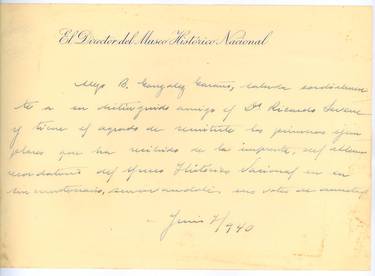 El Director del Museo Histórico Nacional
Alejo B. González Garaño, saluda cordialmen
te a su distinguido amigo el Dr Ricardo Levene
y tiene el agrado de remitirle los primeros ejem
plares que ha recibido de la imprenta, del album
recordatorio del Museo Histórico Nacional en su
cincuentenario, sus votos de amistad
Junio 7/940